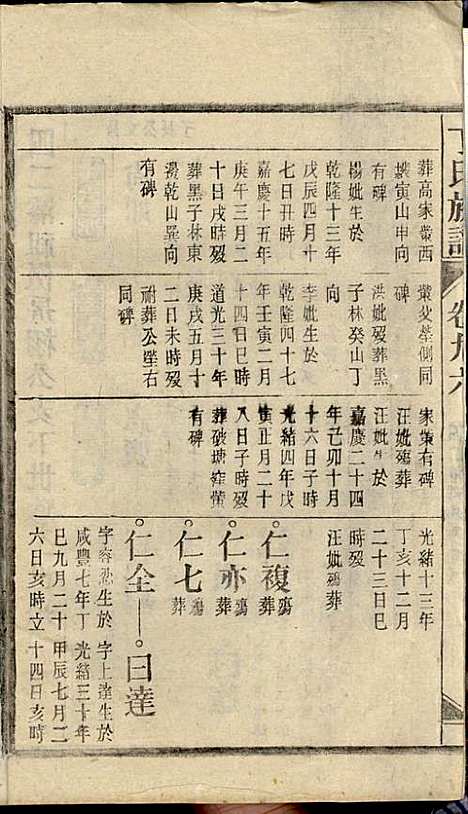 氏族譜
卷九
葬高家叢西
壙寅山申向
有碑
楊妣生於
乾隆十三年
戊辰四月十
七日丑時
嘉慶十五年
庚午三月二
十日戌時歿
葬黑子林東
邊乾山巽向
有碑
叢父塋側同
碑
洪妣歿葬黑
子林癸山丁
向
李妣生於
乾隆四十七
年壬寅二月
十四日巳時
道光三十年
庚戌五月十
二日未時歿
祔葬公塋右
同碑
家叢有碑
汪妣殤葬
汪妣生於
嘉慶二十四
年己卯十月
十六日子時
光緒四年戊
寅正月二十
八日子時歿
葬破塘窪
有碑
光緒十三年
丁亥十二月
二十三日巳
時歿
汪妣殤葬
仁複殤葬
仁亦殤葬
仁七殤葬
仁全
曰達
字容 生於
咸豐七年丁
巳九月二十
六日亥時立
字上達生於
光緒三十年
甲辰七月二
十四日亥時